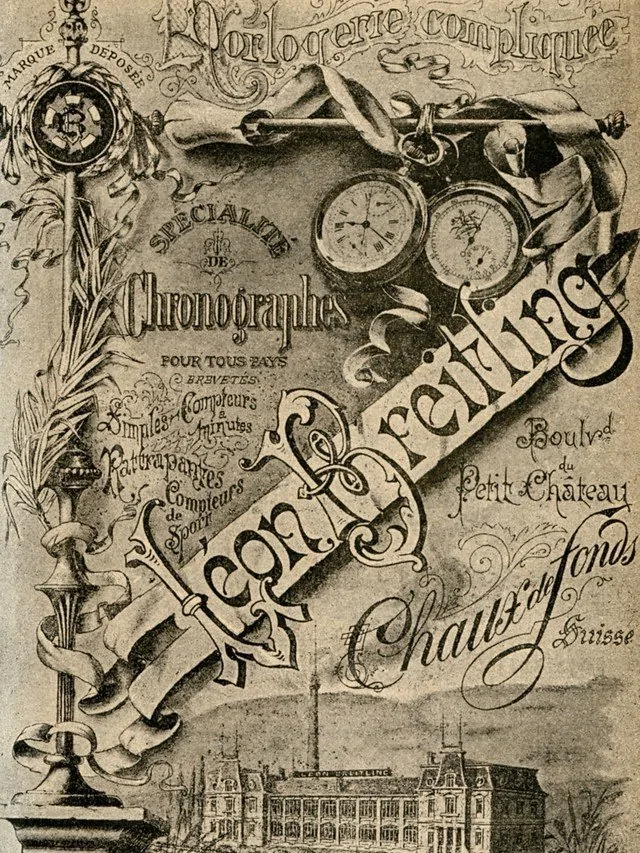 Horlogerie compliquée
MARQUE DÉPOSÉE
B
SPÉCIALITÉ
DE
Chronographes
POUR TOUS PAYS
BREVETÉS
Simples Compteurs
à
minutes
Rattrapantes
Compteurs
de
Sport
Léon Breitling
Boulvd.
du
Petit Château
Chaux de fonds
Suisse
LEON BREITLING